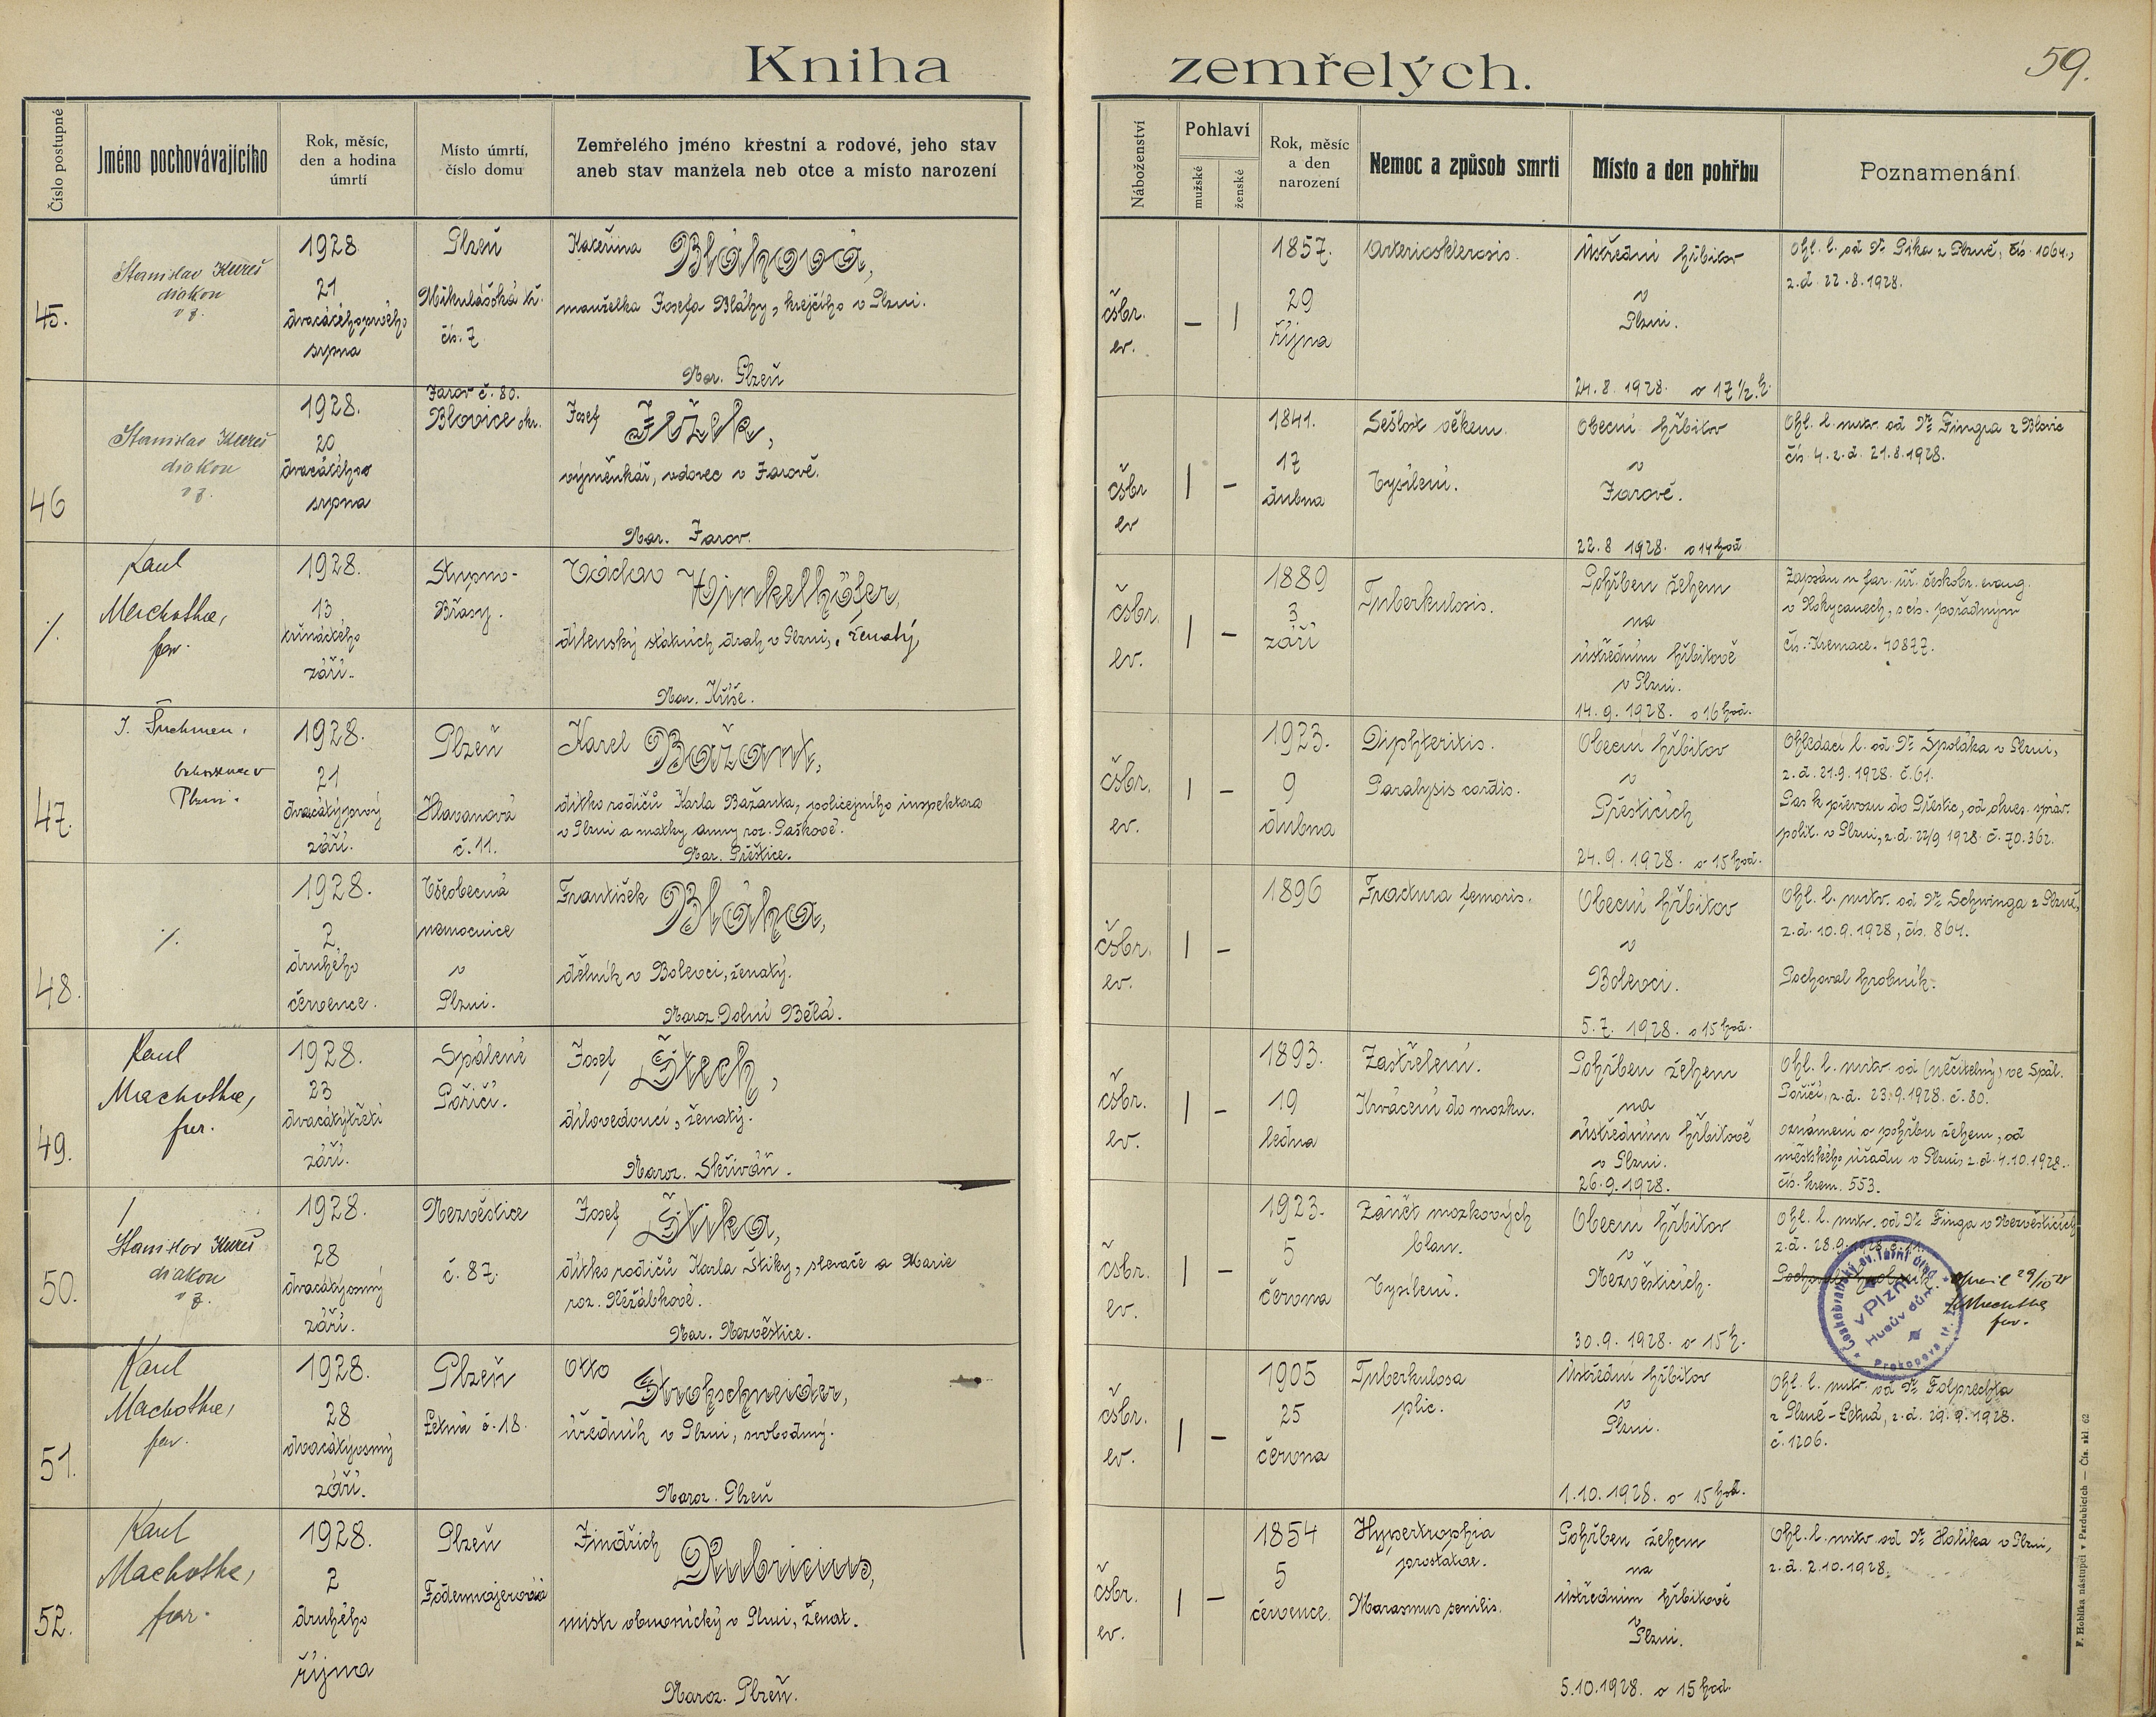 Kniha zemřelých.
59.
Číslo postupné
Jméno pochovávajícího
Rok, měsíc,
den a hodina
úmrtí
Místo úmrtí,
číslo domu
Zemřelého jméno křestní a rodové, jeho stav
aneb stav manžela neb otce a místo narození
Náboženství
Pohlaví
mužské
ženské
Rok, měsíc
a den
narození
Nemoc a způsob smrti
Místo a den pohřbu
Poznamenání
45.
Stanislav
diakon
v z.
1928
21
dvacátéhoprvého
srpna
Plzeň
Mikulášská tř.
čís. 7
Kateřina Bláhová,
manželka Josefa Bláhy, krejčího v Plzni.
Nar. Plzeň
čsbr.
ev.
– |
1857.
29
října
Arteriosklerosis.
Ústřední hřbitov
v
Plzni.
24.8.1928. o 17½.h.
Ohl. l. od Dr. Pika z Plzně, čís. 1064.,
z.d. 22.8.1928.
46
Stanislav
diakon
v z.
1928.
20
dvacátého
srpna
Žarov č. 80.
Blovice okr.
Josef Ježek,
výměnkář, vdovec v Žarově.
Nar. Žarov.
čsbr
ev
| –
1841.
17
dubna
Sešlost věkem.
Vysílení.
Obecní hřbitov
v
Žarově.
22.8 1928. o 14 hod
Ohl. l. mrtv. od Dr. Fingra z Blovic
čís. 4. z.d. 21.8.1928.
·/.
Karel
Machotka,
far.
1928.
13
třináctého
září.
Stupno-
Břasy.
Václav Winkelhöfer,
dílenský státních drah v Plzni, ženatý,
Nar. Kříše.
čsbr.
ev.
| –
1889
3
září
Tuberkulosis.
Pohřben žehem
na
ústředním hřbitově
v Plzni.
14.9.1928. o 16 hod.
Zapsán u far. úř. českobr. evang.
v Rokycanech, s čís. pořadným
čís. Kremace. 40877.
47.
Plzni.
1928.
21
dvacátýprvý
září.
Plzeň
Hlavanová
č. 11.
Karel Bažant,
dítko rodičů Karla Bažanta, policejního inspektora
v Plzni a matky Anny roz. Paškové.
Nar. Přeštice.
čsbr.
ev.
| –
1923.
9
dubna
Diphteritis.
Paralysis cordis.
Obecní hřbitov
v
Přešticích
24.9.1928. o 15 hod.
Ohledací l. od Dr. Špoláka v Plzni,
z.d. 21.9.1928. č.61.
Pas k převozu do Přeštic, od okres. správ.
polit. v Plzni, z.d. 22/9 1928. č. 70.362.
48.
·/.
1928.
2
druhého
července.
Všeobecná
nemocnice
v
Plzni.
František Bláha,
dělník v Bolevci, ženatý.
Naroz. Dolní Bělá.
čsbr.
ev.
| –
1896
Fractura femoris.
Obecní hřbitov
v
Bolevci.
5.7.1928. o 15 hod.
Ohl. l. mrtv. od Dr. Schwinga z Plzně,
z.d. 10.9.1928, čís. 864.
Pochoval hrobník.
49.
Karel
Machotka,
far.
1928.
23
dvacátýtřetí
září.
Spálené
Poříčí.
Josef Štech,
dílovedoucí, ženatý.
Naroz. Skřiváň.
čsbr.
ev.
| –
1893.
19
ledna
Zastřelení.
Krvácení do mozku.
Pohřben žehem
na
ústředním hřbitově
v Plzni.
26.9.1928.
Ohl. l. mrtv od (nečitelný) ve Spál.
Poříčí, z.d. 23.9.1928. č. 80.
oznámení o pohřbu žehem, od
městského úřadu v Plzni z.d. 4.10.1928.
čís. krem. 553.
50.
Stanislav
diakon
v z.
1928.
28
dvacátýosmý
září.
Nezvěstice
č. 87.
Josef Štika,
dítko rodičů Karla Štiky, slevače a Marie
roz. Řežábkové.
Nar. Nezvěstice.
čsbr.
ev.
| –
1923.
5
června
Zánět mozkových
blan.
Vysílení.
Obecní hřbitov
v
Nezvěsticích.
30.9.1928. o 15 h.
Ohl. l. mrtv. od Dr. Finga v Nezvěsticích
z.d. 28.9.1928
Pochoval hrobník.
opravil 29/10 28
Machotka
far.
Českobratrský ev. farní úřad
v Plzni
Husův dům.
Prokopova tř.
51.
Karel
Machotka,
far.
1928.
28
dvacátýosmý
září.
Plzeň
Letná č. 18.
Otto Strohschneider,
úředník v Plzni, svobodný.
Naroz. Plzeň
čsbr.
ev.
| –
1905
25
června
Tuberkulosa
plic.
Ústřední hřbitov
v
Plzni.
1.10.1928. o 15 hod.
Ohl. l. mrtv. od Dr. Folprechta
z Plzně-Letná, z.d. 29.9.1928.
č. 1206.
52.
Karel
Machotka,
far.
1928.
2
druhého
října
Plzeň
Jindřich Rubricius,
mistr obuvnický v Plzni, ženat.
Naroz. Plzeň.
čsbr.
ev.
| –
1854
5
července.
Hypertrophia
prostatae.
Marasmus senilis.
Pohřben žehem
na
ústředním hřbitově
v
Plzni.
5.10.1928. o 15 hod.
Ohl. l. mrtv od Dr. Holika v Plzni,
z.d. 2.10.1928.
F. Hoblíka nástupci v Pardubicích — Čís. skl. 62